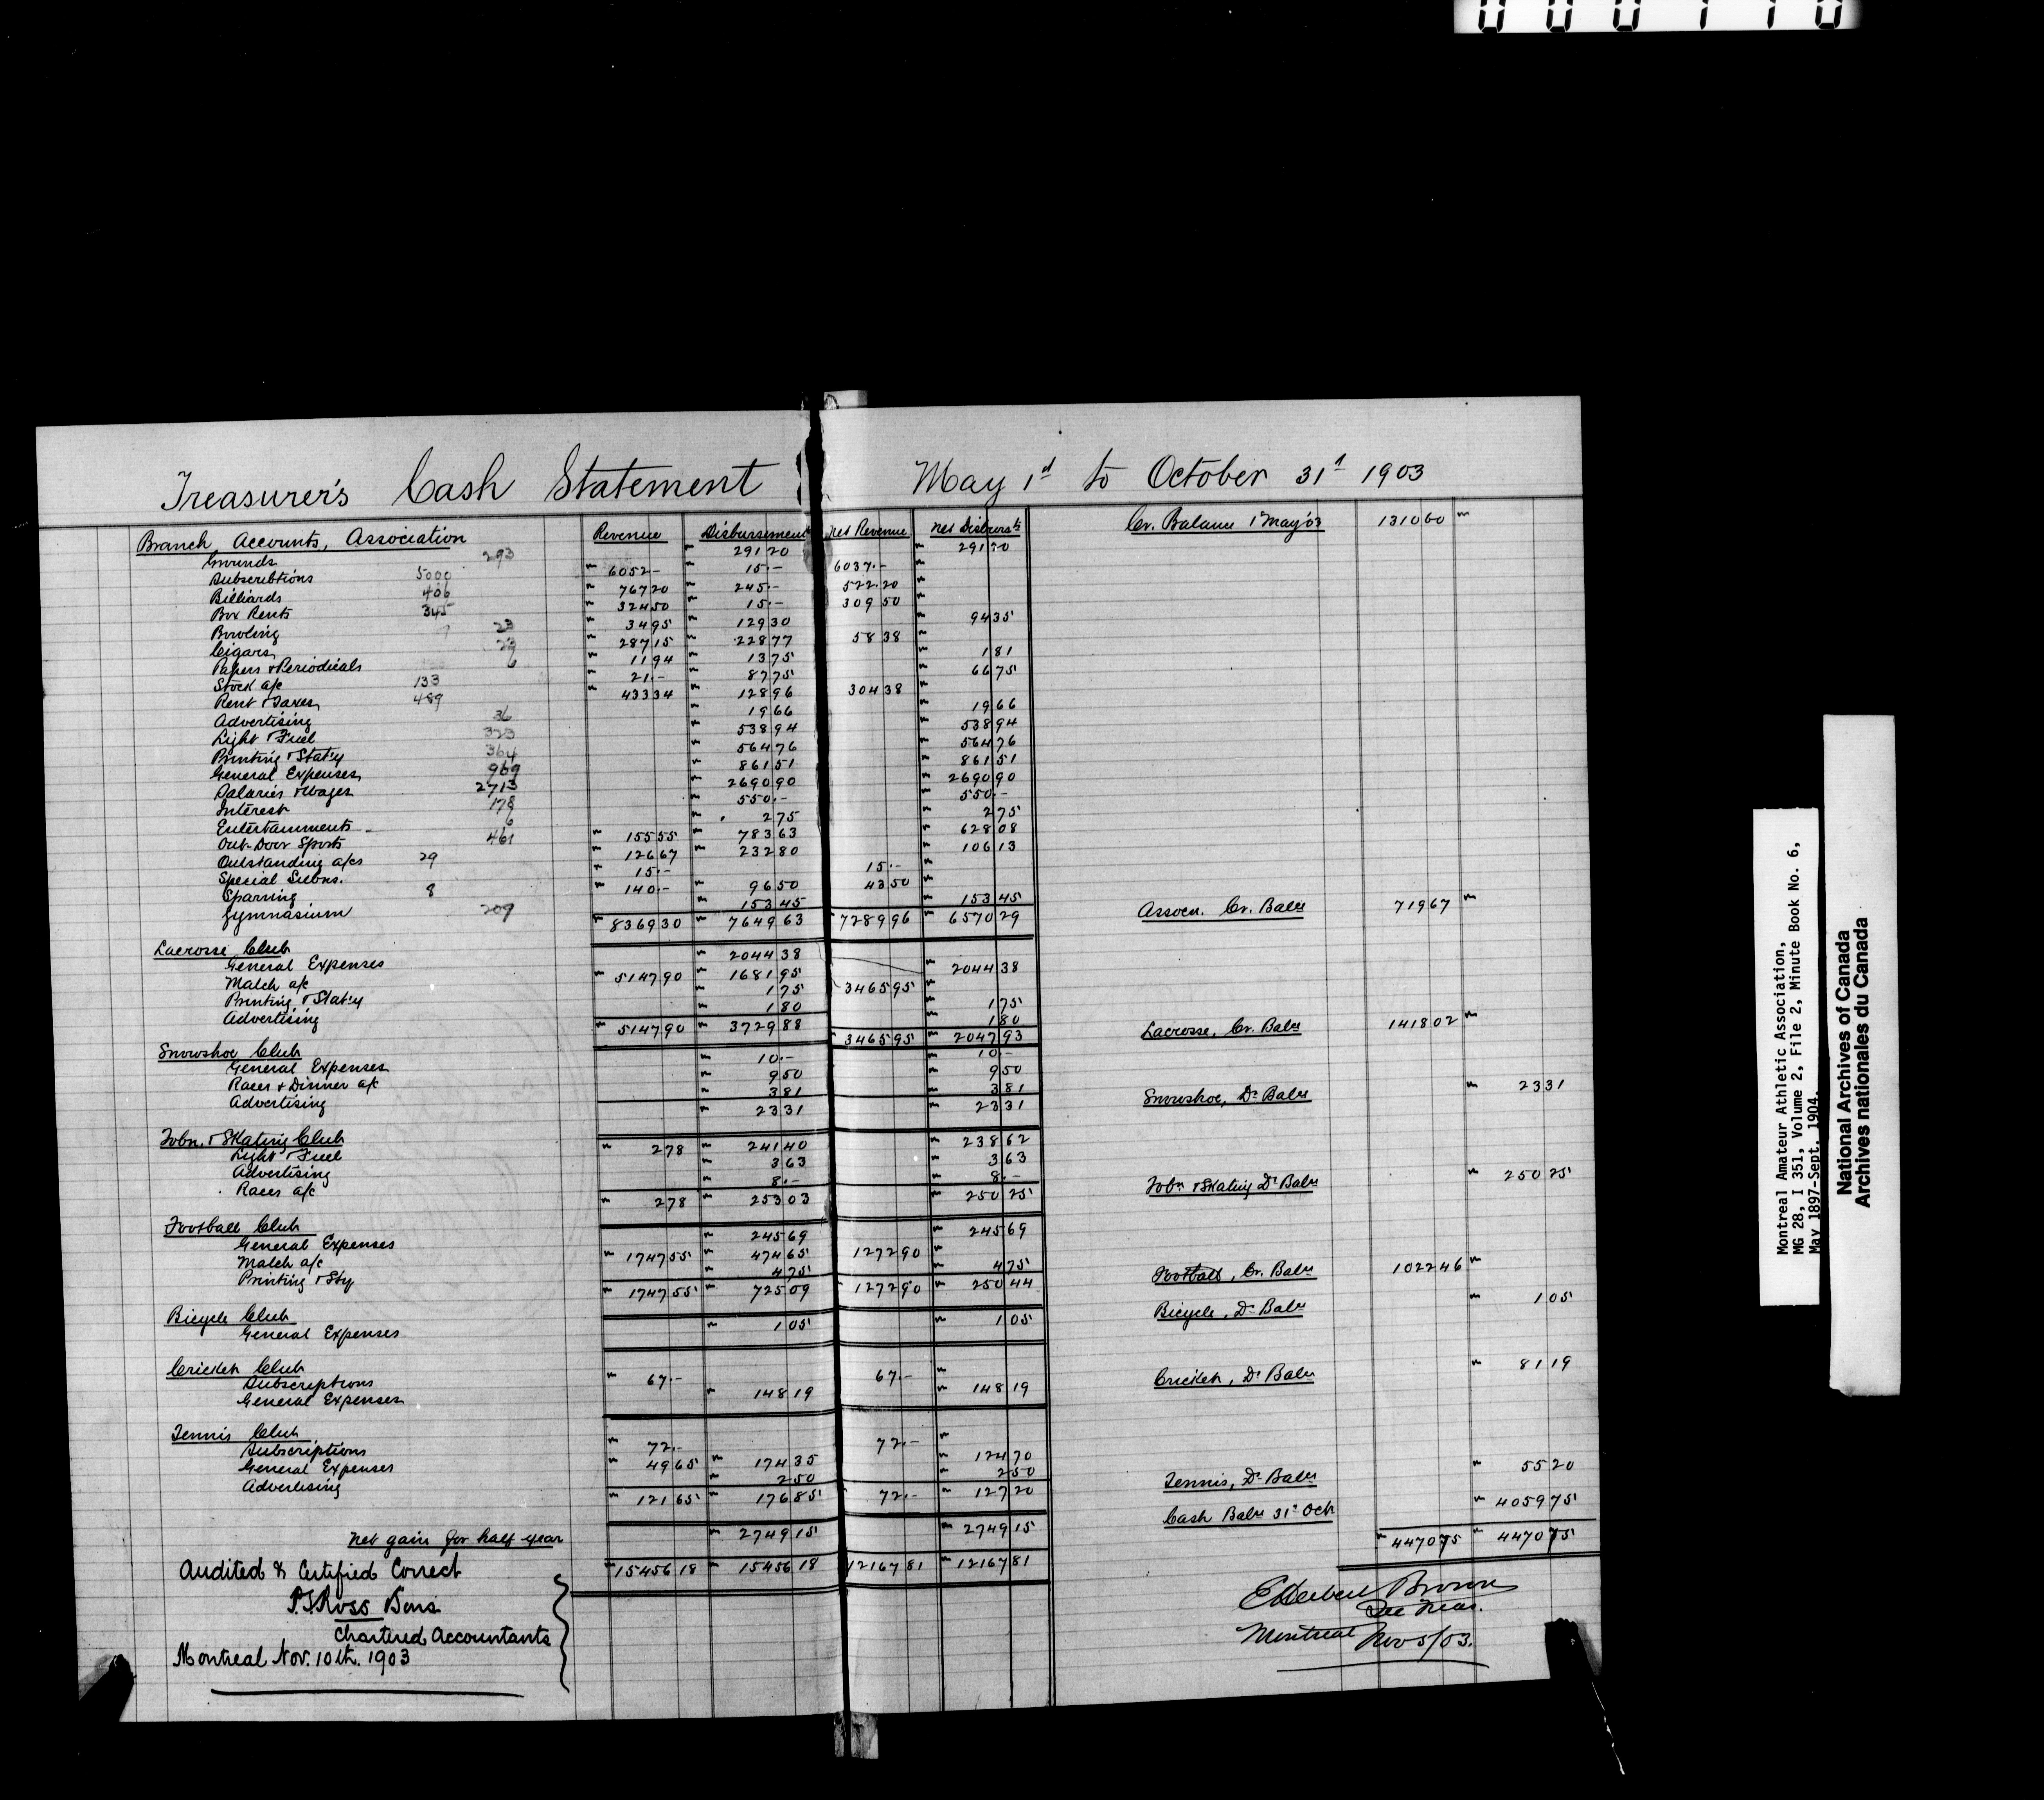 000110
Treasurer's Cash Statement May 1st to October 31st 1903
Branch Accounts, Association Revenue Disbursements Net Revenue Net Disbursts Cr. Balance 1 May '03 1310 60
Grounds 293 291 20 291 20
Subscribtions 5000 6052 - 15 - 6037 -
Billiards 406 767 20 245 - 522 20
Box Rents 345 324 50 15 - 309 50
Bowling 23 34 95 129 30 94 35
Cigars 287 15 228 77 58 38
Papers & Periodicals 6 11 94 13 75 1 81
Stock a/c 133 21 - 87 75 66 75
Rent & Taxes 489 433 34 128 96 304 38
Advertising 36 19 66 19 66
Light & Fuel 323 538 94 538 94
Printing & Stat'y 364 564 76 564 76
General Expenses 969 861 51 861 51
Salaries & Wages 2713 2690 90 2690 90
Interest 178 550 - 550 -
Entertainments 6 2 75 2 75
Out-Door Sports 461 155 55 783 63 628 08
Outstanding a/cs 29 126 67 232 80 106 13
Special Subns. 15 - 15 -
Sparring 8 140 - 96 50 43 50
Gymnasium 209 153 45 153 45
8369 30 7649 63 7289 96 6570 29 Assocn. Cr. Balce 719 67
Lacrosse Club
General Expenses 2044 38 2044 38
Match a/c 5147 90 1681 95 3465 95
Printing & Stat'y 1 75 1 75
Advertising 1 80 1 80
5147 90 3729 88 3465 95 2047 93 Lacrosse, Cr. Balce 1418 02
Snowshoe Club
General Expenses 10 - 10 -
Races & Dinner a/c 9 50 9 50
Advertising 3 81 3 81
23 31 23 31 Snowshoe, Dr Balce 23 31
Tobn. & Skating Club
Light & Fuel 2 78 241 40 238 62
Advertising 3 63 3 63
Races a/c 8 - 8 -
2 78 253 03 250 25 Tobn & Skating Dr Balce 250 25
Football Club
General Expenses 245 69 245 69
Match a/c 1747 55 474 65 1272 90
Printing & Sty 4 75 4 75
1747 55 725 09 1272 90 250 44 Football, Cr. Balce 1022 46
Bicycle Club Bicycle, Dr Balce 1 05
General Expenses 1 05 1 05
Cricket Club
Subscriptions 67 - 67 -
General Expenses 148 19 148 19 Cricket, Dr Balce 81 19
Tennis Club
Subscriptions 72 - 72 -
General Expenses 49 65 174 35 124 70
Advertising 2 50 2 50
121 65 176 85 72 - 127 20 Tennis, Dr Balce 55 20
Cash Balce 31st Oct 4059 75
Net gain for half year 2749 15 2749 15 4470 75 4470 75
15456 18 15456 18 12167 81 12167 81
Audited & Certified Correct
P.S. Ross & Sons
Chartered Accountants
Montreal Nov. 10th. 1903
E Herbert Brown
Sec Treas.
Montreal Nov 5/03.
Montreal Amateur Athletic Association,
MG 28, I 351, Volume 2, File 2, Minute Book No. 6,
May 1897-Sept. 1904.
National Archives of Canada
Archives nationales du Canada